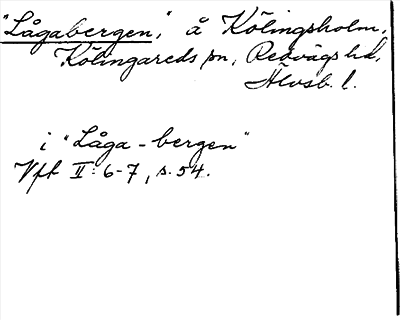 "Lågabergen," å Kölingsholm,
Kölingareds sn, Redvägs hd,
Älvsb. l.
i "Låga-bergen"
Vft II: 6-7, s. 54.